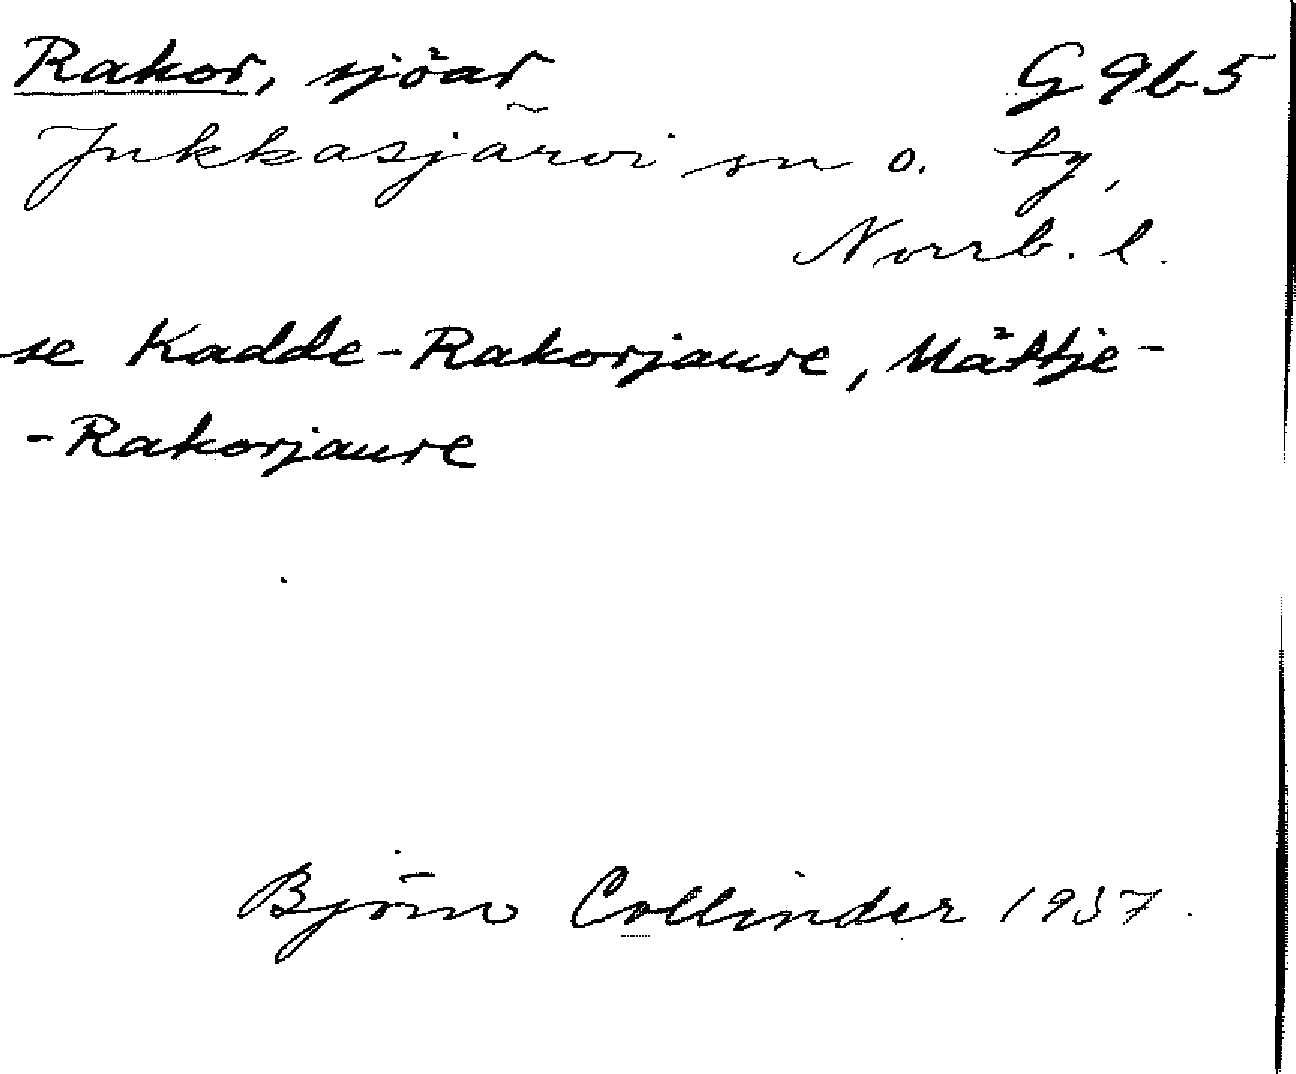 Rakor, sjöar G 9b5
Jukkasjärvi sn o. ty,
Norrb. l.
se Kadde-Rakorjaure, Mättje-
-Rakorjaure
Björn Collinder 1937.